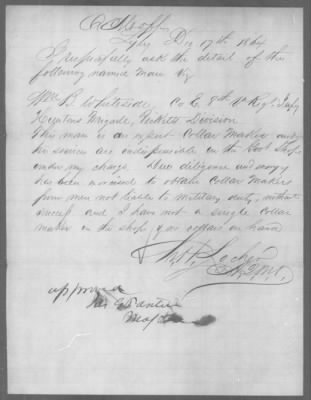 Dec 17th 1864
I respectfully ask the detail of the
following named man Viz
Wm B. Whiteside, Co E, 8th Va Regt Infy
Huntons Brigade, Picketts Division
This man is an expert Collar Maker and
his services are indispensable in the Govt Shops
under my charge. Due diligence and energy
has been exercised to obtain Collar Makers
from men not liable to Military duty, without
success and I have not a single Collar
maker in the shop, &no collars on hand
approved
Maj